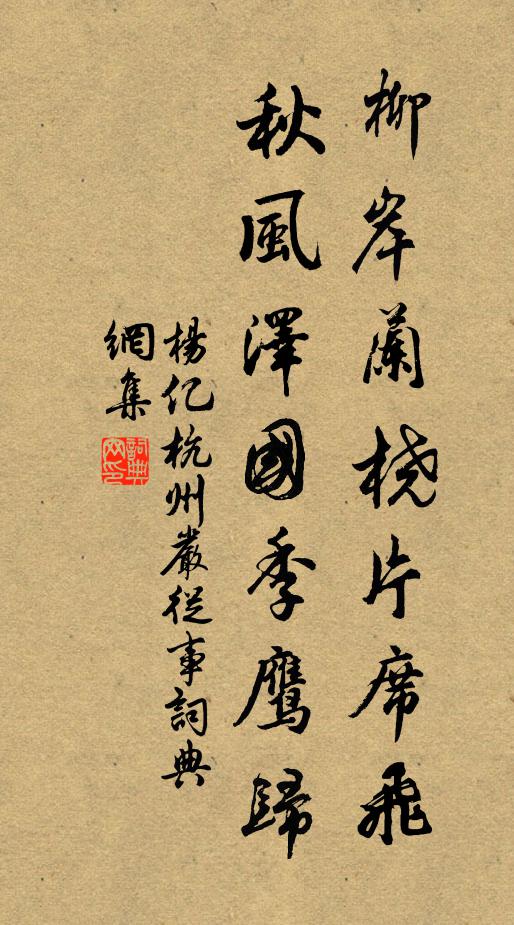 柳岸蘭桡片席飛
秋風澤國季鹰歸
楊亿杭州嚴從事詞典
網集
詞典
网印